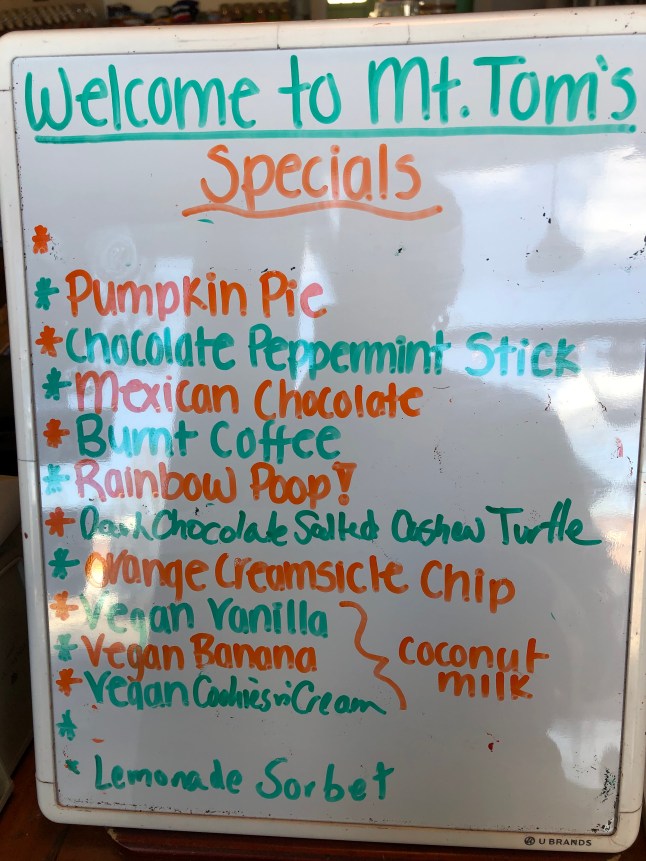 Welcome to Mt. Tom's
Specials
*
* Pumpkin Pie
* Chocolate Peppermint Stick
* Mexican Chocolate
* Burnt Coffee
* Rainbow Poop!
* Dark Chocolate Salted Cashew Turtle
* Orange Creamsicle Chip
* Vegan Vanilla
* Vegan Banana
* Vegan Cookies n' Cream
coconut
milk
*
* Lemonade Sorbet
U BRANDS